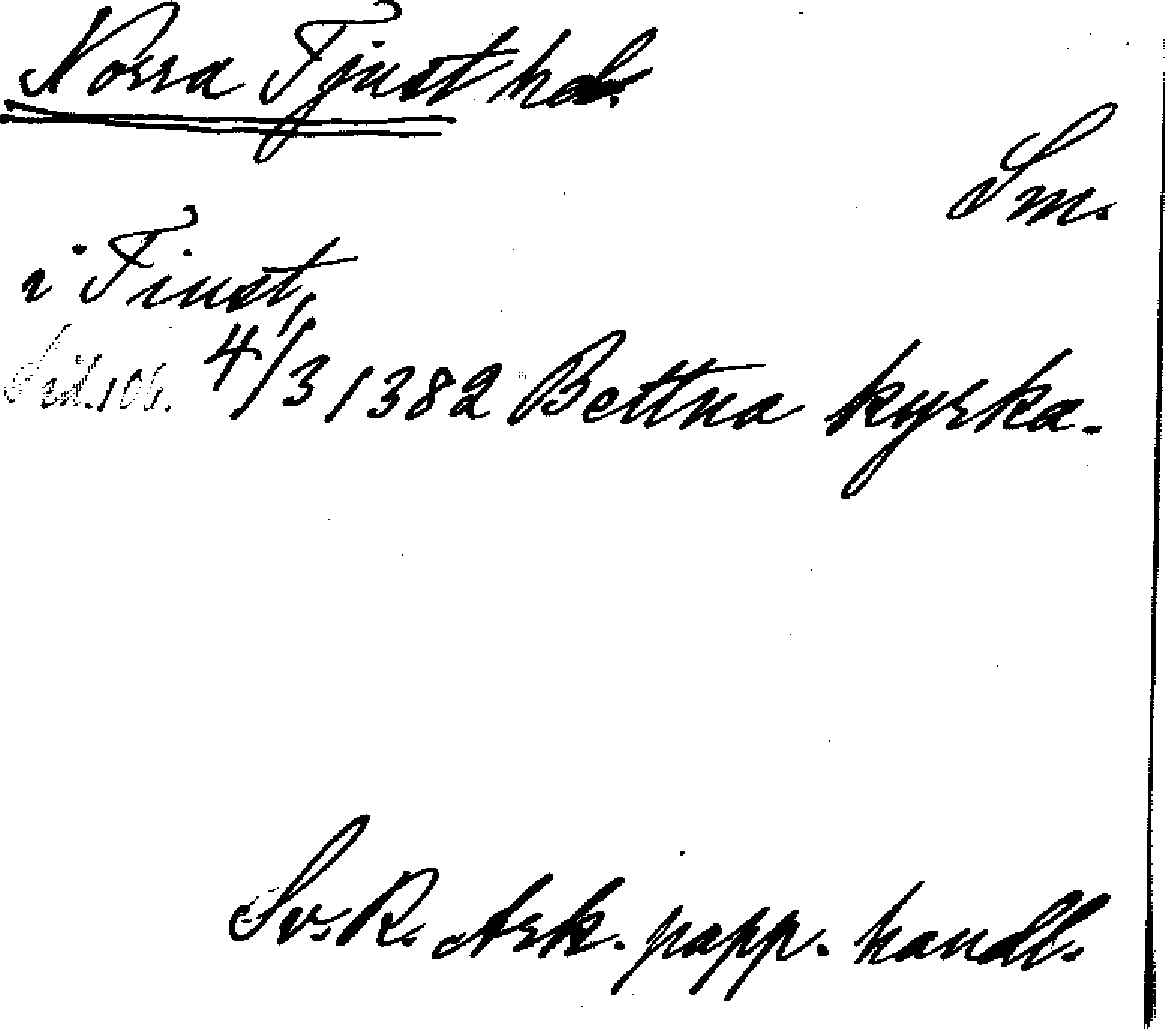 Norra Tjust hd.
Sm.
i Tiust,
4/3 1382 Bettna kyrka.
Sv. R. Ark. papp. handl.